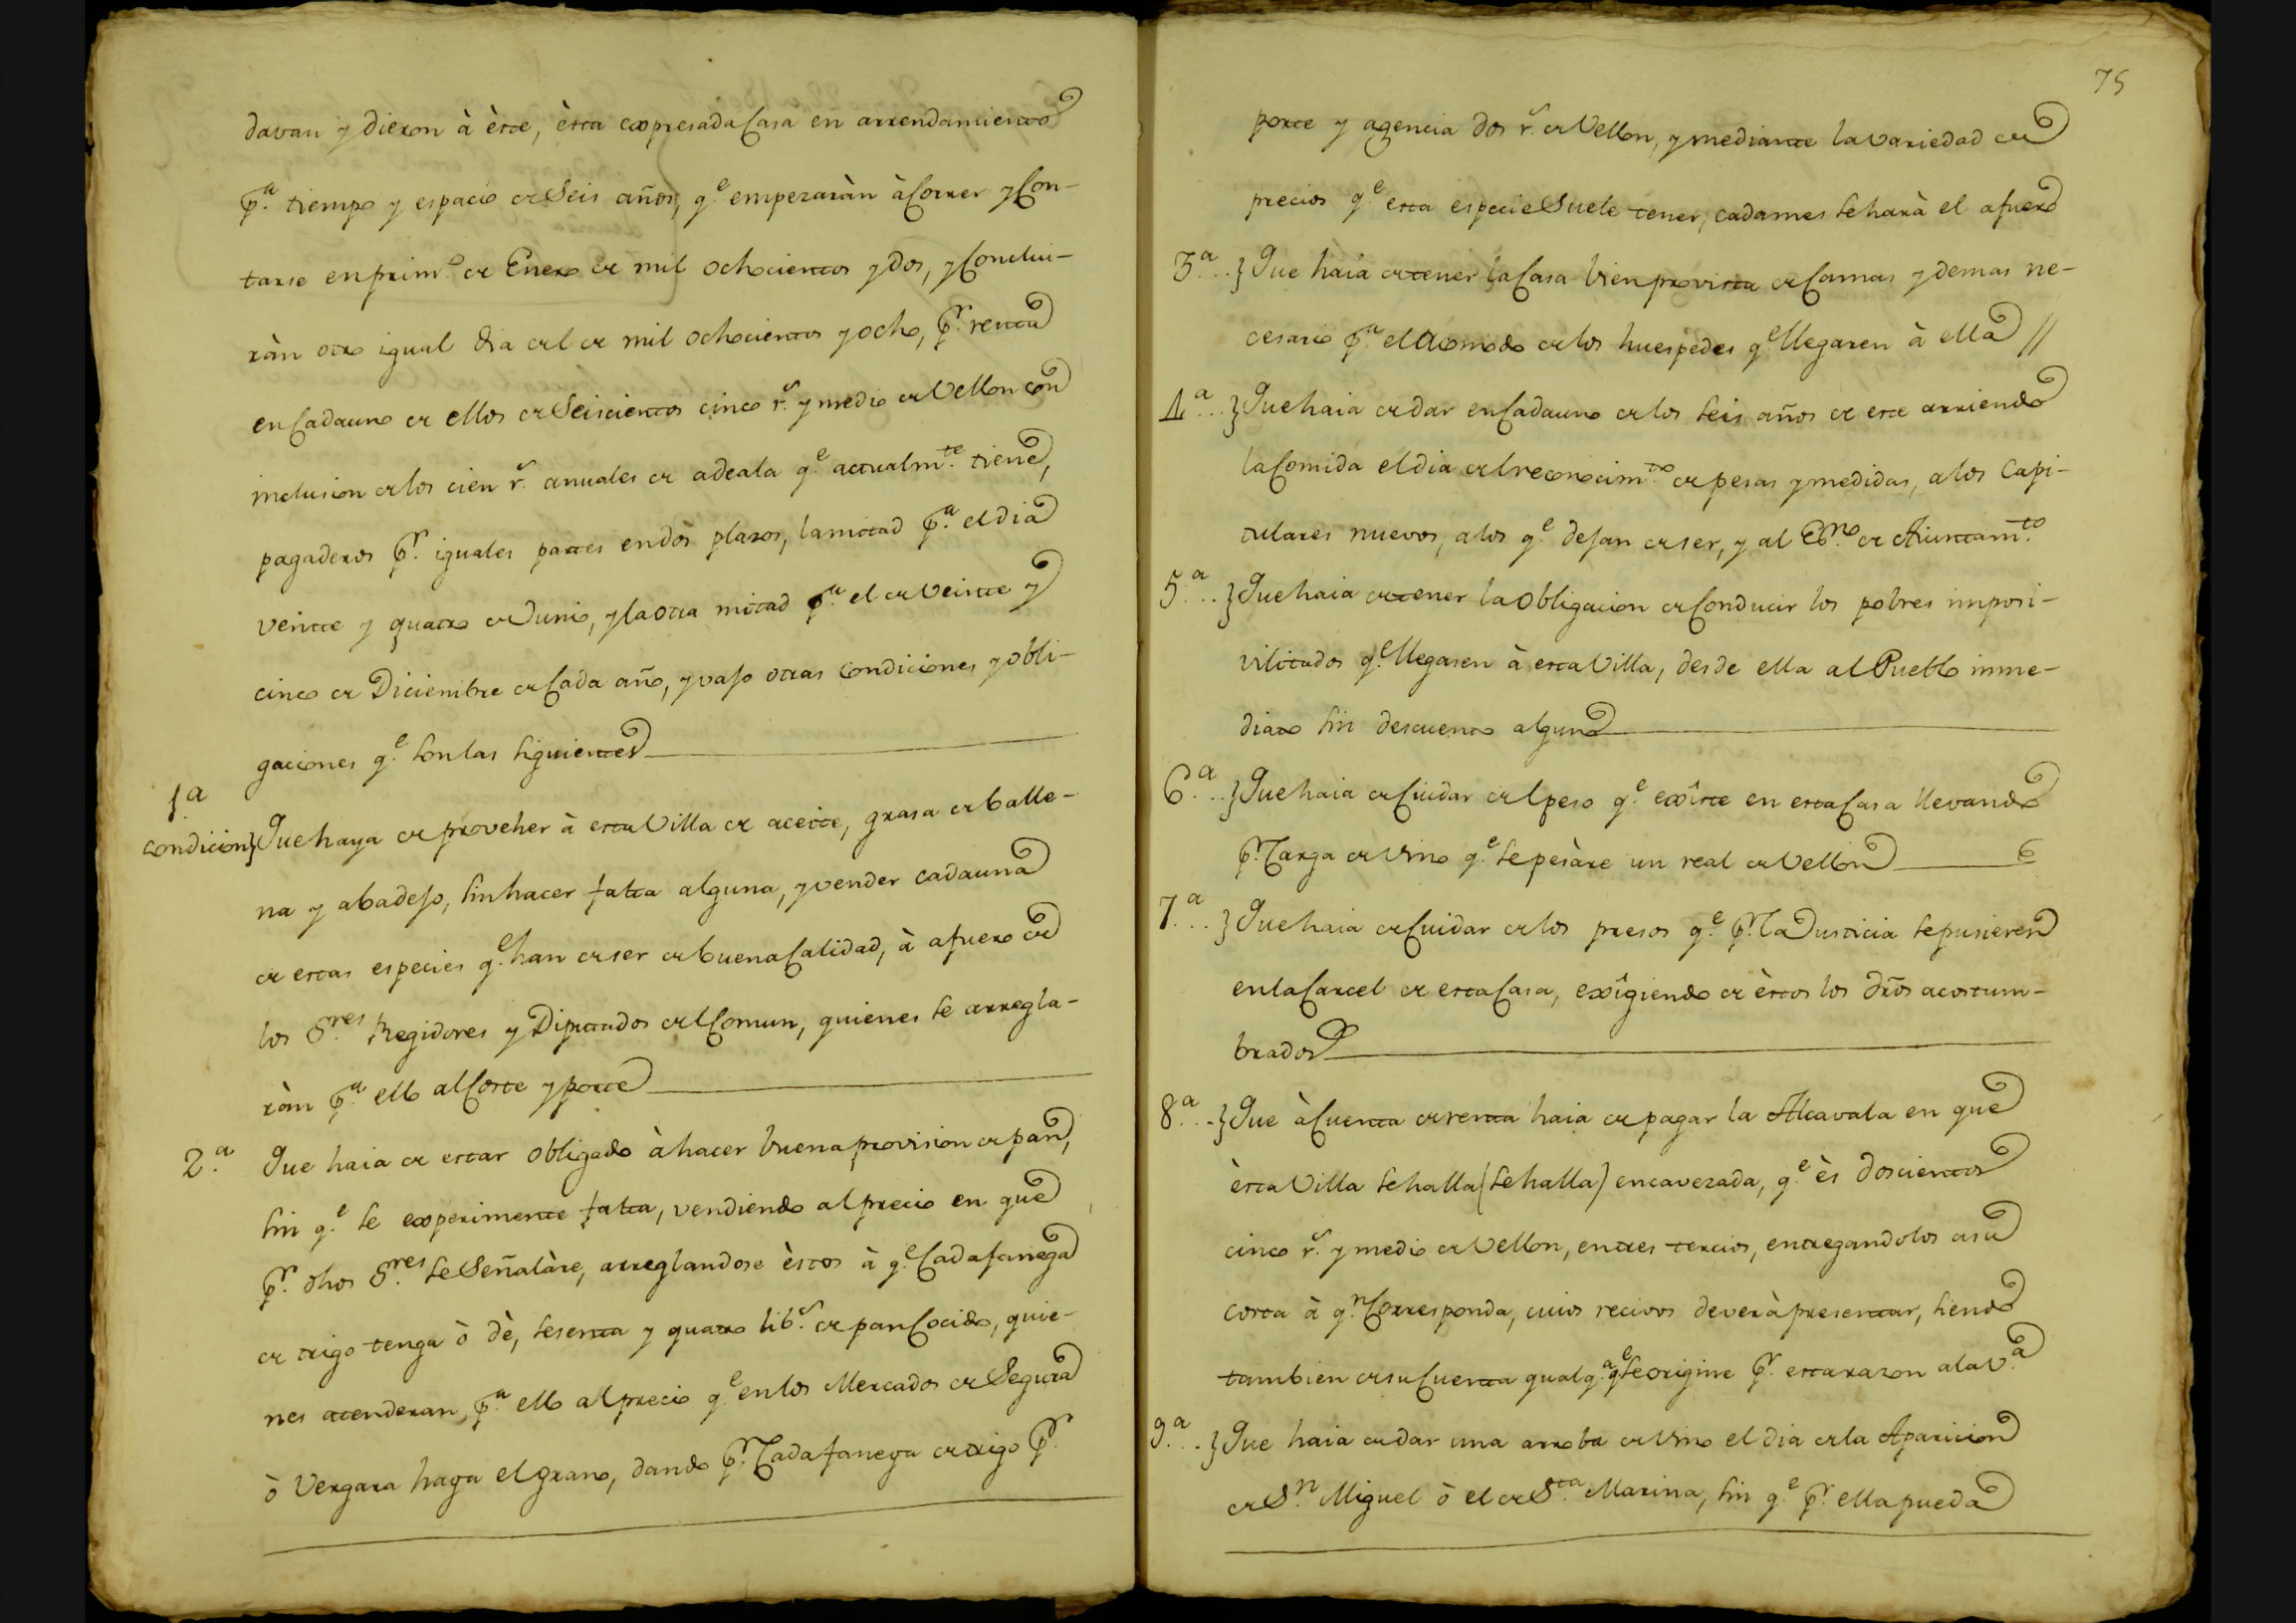 davan y dieron à èste, èsta expresada Casa en arrendamiento
p.ª tiempo y espacio de Seis años, q.e empezaràn à Correr y Con-
tarse en prim.o de Enero de mil ochocientos y dos, y Conclui-
ràn otro igual dia del de mil ochocientos y ocho, p.r renta
en Cadauno de ellos de Seiscientos cinco r.s y medio de Vellon con
inclusion de los cien r.s anuales de adeala q.e actualm.te tiene,
pagaderos p.r iguales partes en dòs plazos, la mitad p.ª el dia
veinte y quatro de Junio, y la otra mitad p.ª el de Veinte y
cinco de Diciembre de Cada año, y vajo otras Condiciones y obli-
gaciones q.e son las siguientes
1.ª
condicion} Que haya de proveher à esta Villa de aceite, grasa de balle-
na y abadejo, sin hacer falta alguna, y vender cadauna
de estas especies q.e han de ser de buena Calidad, à afuero de
los S.res Regidores y Diputados del Comun, quienes se arregla-
ràn p.ª ello al Coste y porte
2.ª Que haia de estar obligado à hacer buena provision de pan,
sin q.e se experimente falta, vendiendo al precio en que
p.r dhos S.res se Señalàre, arreglandose èstos à q.e Cada fanega
de trigo tenga ò dè, sesenta y quatro lib.s de pan Cocido, quie-
nes atenderan, p.ª ello al precio q.e en los Mercados de Segura
ò Vergara haga el grano, dando p.r Cada fanega de trigo p.r
75
porte y agencia dos r.s de Vellon, y mediante la variedad de
precios q.e esta especie Suele tener, cada mes se harà el afuero
3.ª..} Que haia de tener la Casa bien provista de Camas y demas ne-
cesario p.ª el acomodo de los huespedes q.e llegaren à ella //
4.ª..} Que haia de dar en Cadauno de los seis años de este arriendo
la Comida el dia del reconocim.to de pesas y medidas, a los Capi-
tulares nuevos, a los q.e dejan de ser, y al Es.no de Aiuntam.to
5.ª..} Que haia de tener la obligacion de Conducir los pobres imposi-
vilitados q.e llegasen à esta Villa, desde ella al Pueblo inme-
diato sin descuento alguno
6.ª..} Que haia de Cuidar del peso q.e exîste en esta Casa llevando
p.r Carga de vino q.e se pesàre un real de Vellon
7.ª..} Que haia de Cuidar de los presos q.e p.r la Justicia se pusieren
en la Carcel de esta Casa, exîgiendo de èstos los dr̃os acostum-
brados
8.ª..} Que à Cuenta de renta haia de pagar la Alcavala en que
èsta Villa se halla (se halla) encavezada, q.e ès doscientos
cinco r.s y medio de Vellon, en tres tercios, entregandolos a su
costa à q.n Corresponda, cuios recivos deverà presentar, siendo
tambien de su Cuenta qualq.ª q.e se origine p.r esta razon a la V.ª
9.ª..} Que haia de dar una arroba de vino el dia de la Aparicion
de S.n Miguel ò el de S.ta Marina, sin q.e p.r ella pueda